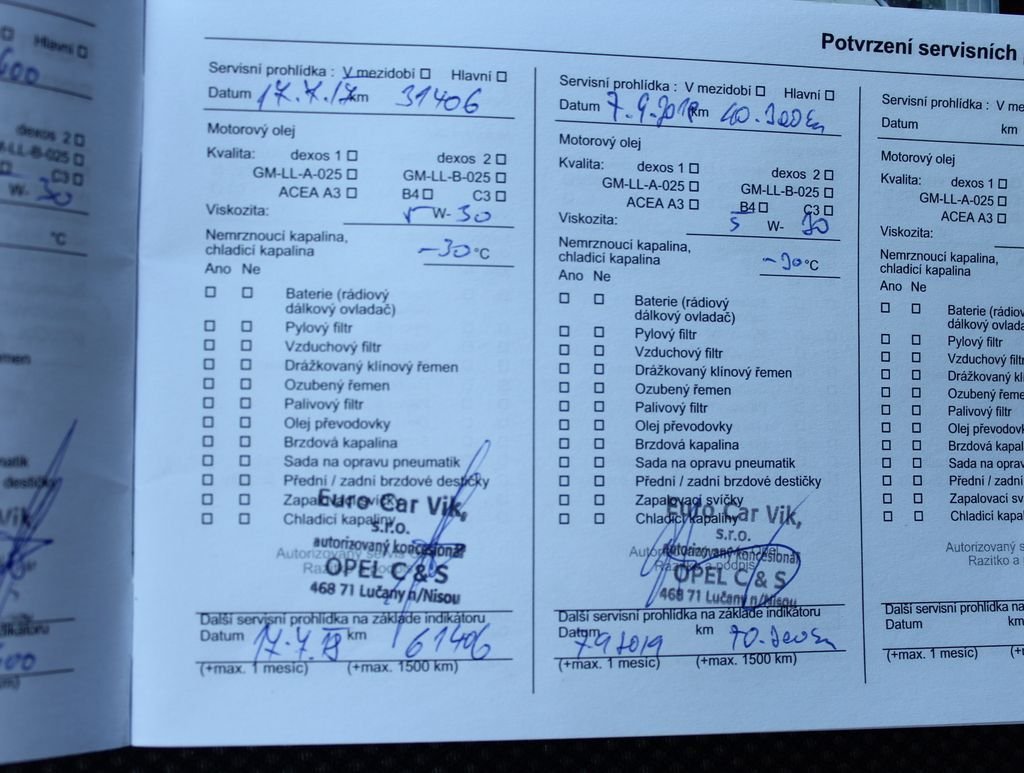 Hlavní
600
dexos 2
LL-B-025
C3
W- 30
°C
Potvrzení servisních
Servisní prohlídka : V mezidobí Hlavní
Datum 17.7.17 km 31406
Motorový olej
Kvalita: dexos 1 dexos 2
GM-LL-A-025 GM-LL-B-025
ACEA A3 B4 C3
Viskozita: 5 W- 30
Nemrznoucí kapalina,
chladicí kapalina -30 °C
Ano Ne
Baterie (rádiový
dálkový ovladač)
Pylový filtr
Vzduchový filtr
Drážkovaný klínový řemen
Ozubený řemen
Palivový filtr
Olej převodovky
Brzdová kapalina
Sada na opravu pneumatik
Přední / zadní brzdové destičky
Zapalovací svíčky
Chladicí kapaliny
Euro Car Vik,
s.r.o.
autorizovaný koncesionář
OPEL C & S
468 71 Lučany n/Nisou
Další servisní prohlídka na základě indikátoru
Datum 17.7.18 km 61406
(+max. 1 měsíc) (+max. 1500 km)
Servisní prohlídka : V mezidobí Hlavní
Datum 7.9.2018 km 40.300 km
Motorový olej
Kvalita: dexos 1 dexos 2
GM-LL-A-025 GM-LL-B-025
ACEA A3 B4 C3
Viskozita: 5 W- 30
Nemrznoucí kapalina,
chladicí kapalina -30 °C
Ano Ne
Baterie (rádiový
dálkový ovladač)
Pylový filtr
Vzduchový filtr
Drážkovaný klínový řemen
Ozubený řemen
Palivový filtr
Olej převodovky
Brzdová kapalina
Sada na opravu pneumatik
Přední / zadní brzdové destičky
Zapalovací svíčky
Chladicí kapaliny
Euro Car Vik,
s.r.o.
autorizovaný koncesionář Opel
Razítko a podpis
OPEL C & S
468 71 Lučany n/Nisou
Další servisní prohlídka na základě indikátoru
Datum 7.9.2019 km 70.300 km
(+max. 1 měsíc) (+max. 1500 km)
Servisní prohlídka : V me
Datum km
Motorový olej
Kvalita: dexos 1
GM-LL-A-025
ACEA A3
Viskozita:
Nemrznoucí kapalina,
chladicí kapalina
Ano Ne
Baterie (rádio
dálkový ovlada
Pylový filtr
Vzduchový filtr
Drážkovaný kl
Ozubený řeme
Palivový filtr
Olej převodovk
Brzdová kapal
Sada na oprav
Přední / zadní
Zapalovací sv
Chladicí kapa
Autorizovaný s
Razítko a
Další servisní prohlídka na
Datum km
(+max. 1 měsíc)